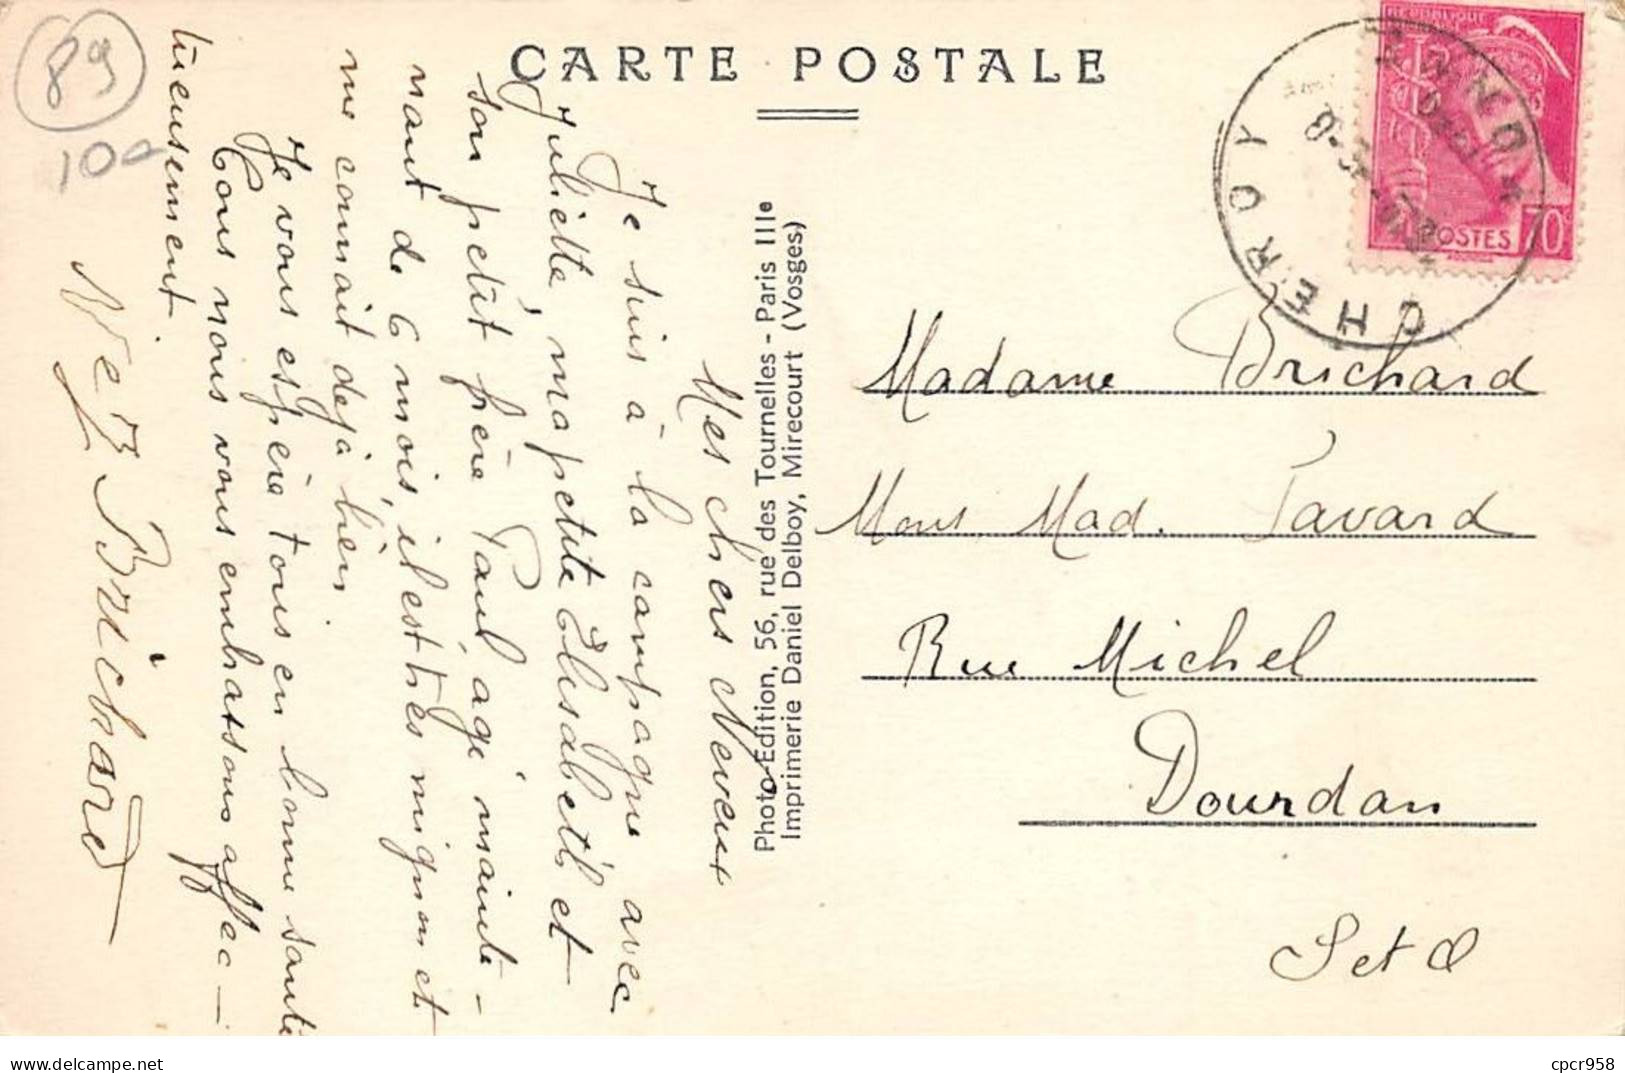 CARTE POSTALE
89
10e
Mes chers Neveux
Je suis à la campagne avec
Juliette, ma petite Elisabeth et
son petit frère Paul, agé mainte-
nant de 6 mois, il est très mignon et
me connait deja bien
Je vous espère tous en bonne santé
Tous nous vous embrassons affec-
tueusement.
Brichard
Photo-Edition, 56, rue des Tournelles - Paris IIIe
Imprimerie Daniel Delboy, Mirecourt (Vosges)
REPUBLIQUE
POSTES 70c
CHEROY
YONNE
Madame Brichard
Mons Mad. Tavard
Rue Michel
Dourdan
S et O
cpcr958